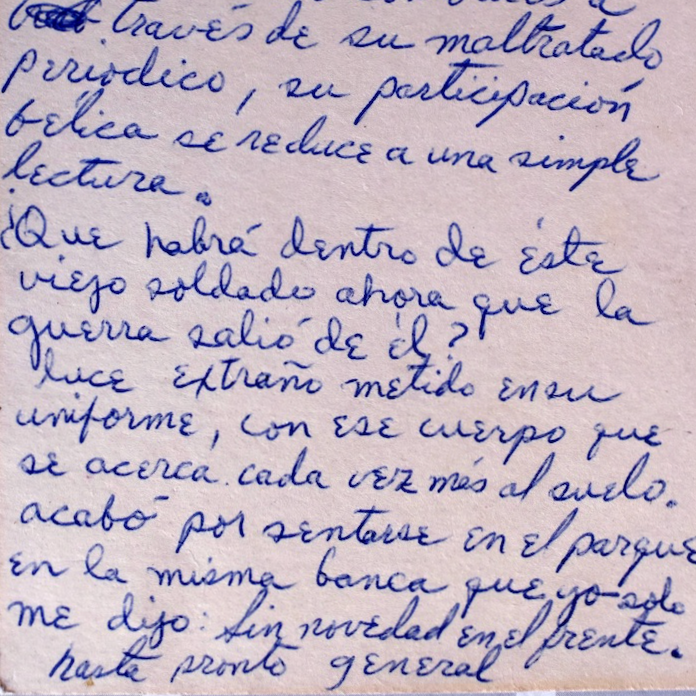 través de su maltratado
periodico, su participación
bélica se reduce a una simple
lectura.
¿Que habrá dentro de éste
viejo soldado ahora que la
guerra salió de él?
luce extraño metido en su
uniforme, con ese cuerpo que
se acerca cada vez más al suelo.
acabó por sentarse en el parque
en la misma banca que yo solo
me dijo: Sin novedad en el frente.
hasta pronto general